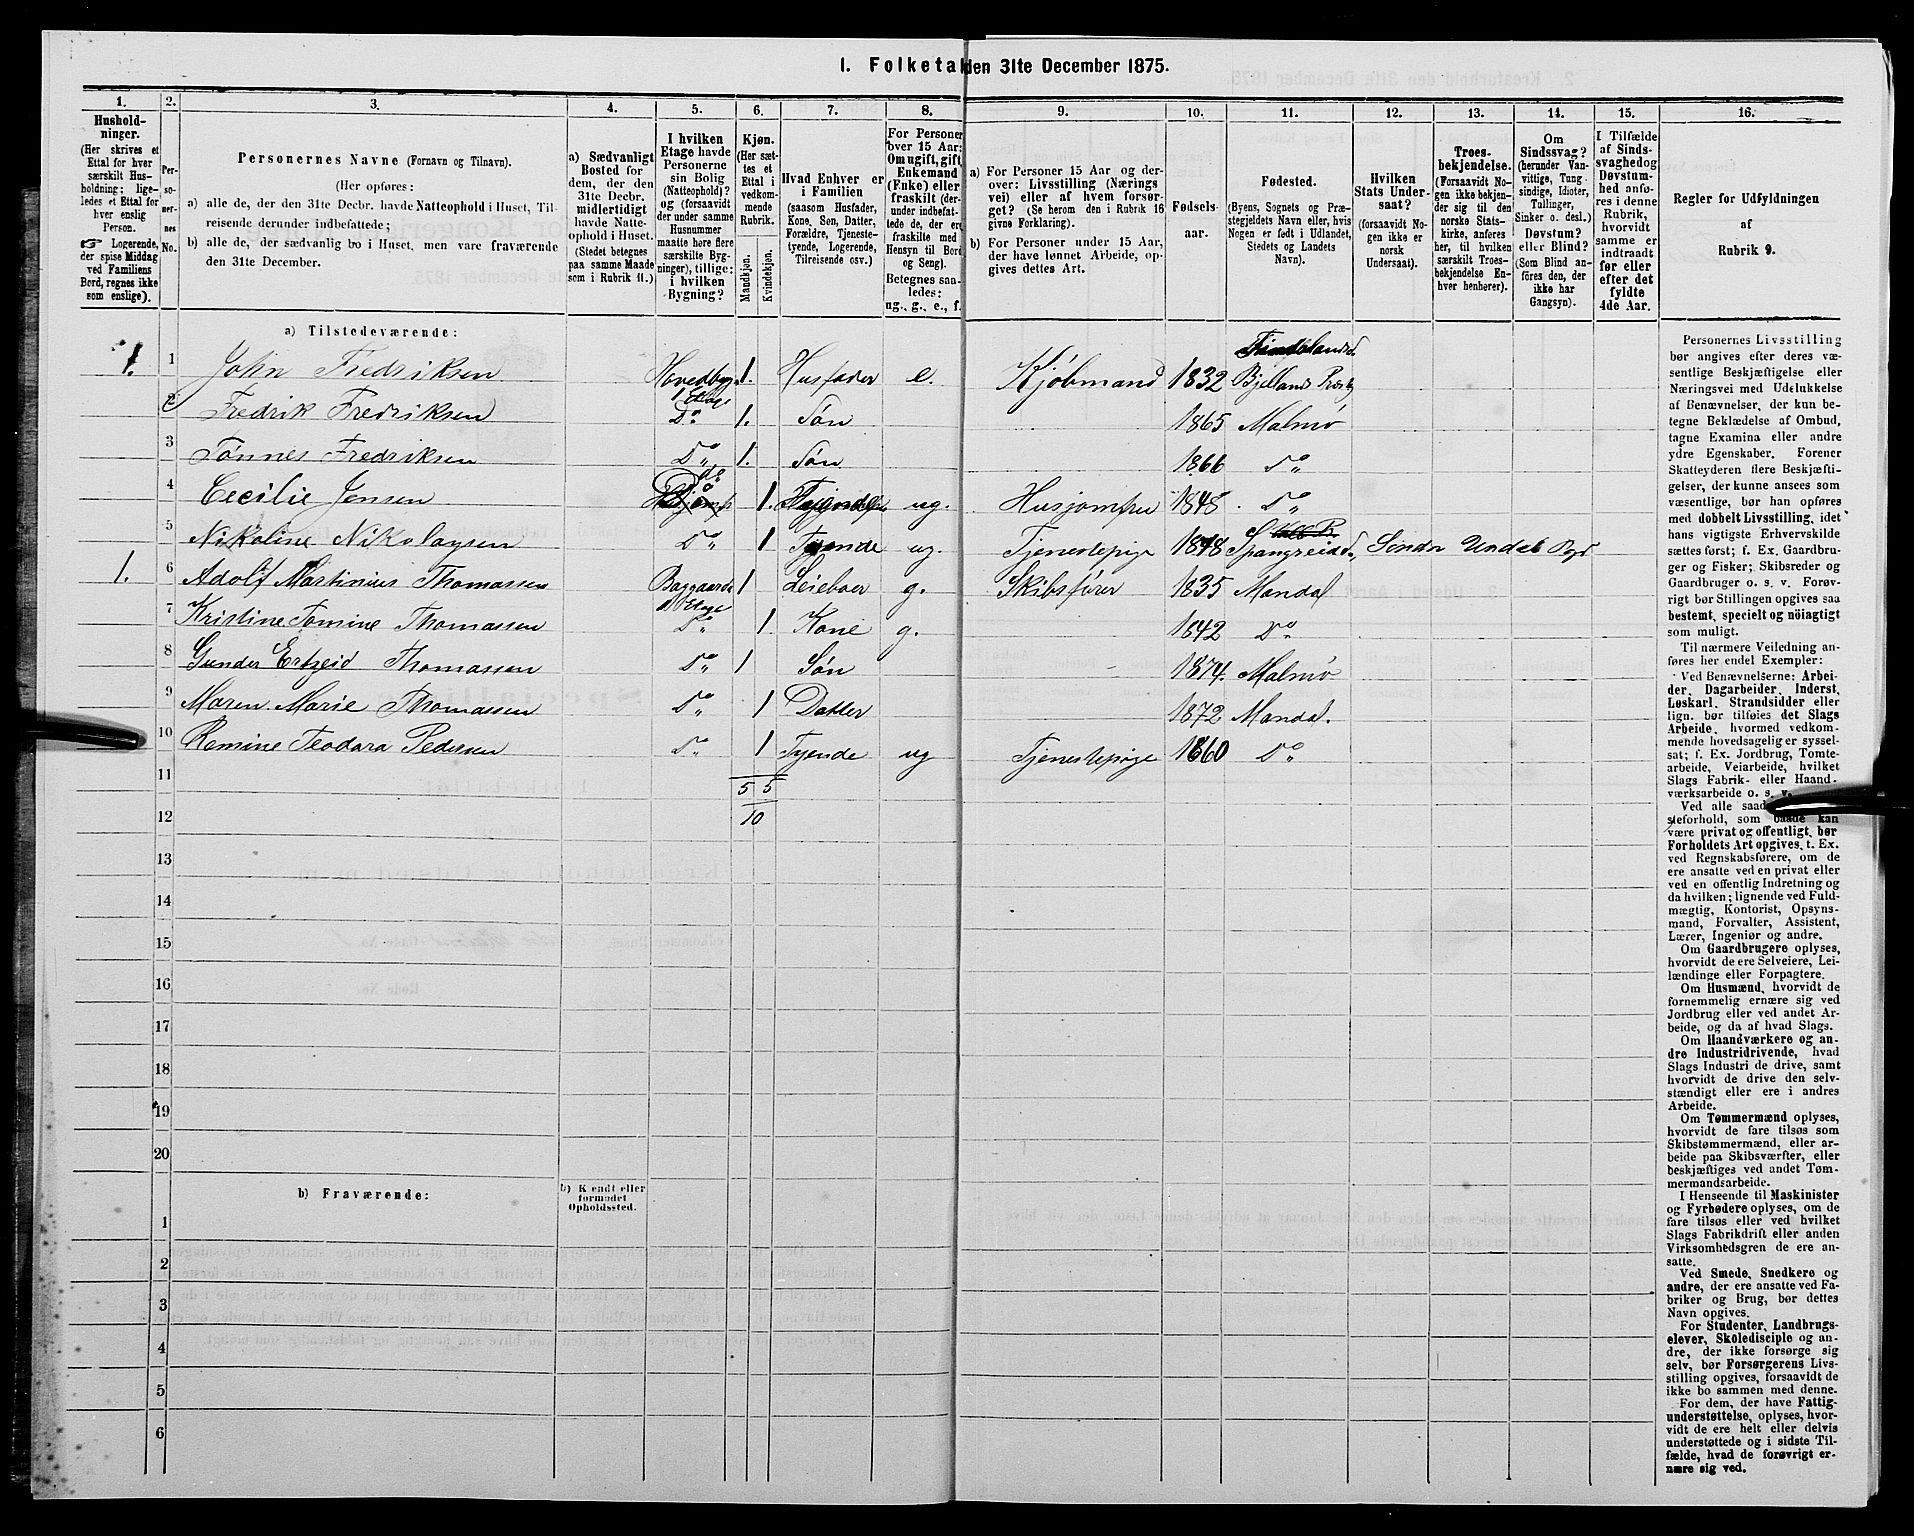 1. Folketal den 31te December 1875.
1. 2. 3. 4. 5. 6. 7. 8. 9. 10. 11. 12. 13. 14. 15. 16.
Hushold-
ninger.
(Her skrives et
Ettal for hver
særskilt Hus-
holdning; lige-
ledes et Ettal for
hver enslig
Person.
☞ Logerende,
der spise Middag
ved Familiens
Bord, regnes ikke
som enslige).
Per-
so-
ner-
nes
No.
Personernes Navne (Fornavn og Tilnavn).
(Her opføres:
a) alle de, der den 31te Decbr. havde Natteophold i Huset, Til-
reisende derunder indbefattede;
b) alle de, der sædvanlig bo i Huset, men vare fraværende
den 31te December.
a) Sædvanligt
Bosted for
dem, der den
31te Decbr.
midlertidigt
havde Natte-
ophold i Huset.
(Stedet betegnes
paa samme Maade
som i Rubrik 11.)
I hvilken
Etage havde
Personerne
sin Bolig
(Natteophold)?
og (forsaavidt
der under samme
Husnummer
maatte høre flere
særskilte Byg-
ninger), tillige:
i hvilken
Bygning?
Kjøn.
(Her sæt-
tes et
Ettal i
vedkom-
mende
Rubrik.
Mandkjøn.
Kvindekjøn.
Hvad Enhver er
i Familien
(saasom Husfader,
Kone, Søn, Datter,
Forældre, Tjeneste-
tyende, Logerende,
Tilreisende osv.)
For Personer
over 15 Aar:
Om ugift, gift,
Enkemand
(Enke) eller
fraskilt (der-
under indbefat-
tede de, der ere
fraskilte med
Hensyn til Bord
og Seng).
Betegnes saa-
ledes:
ug., g., e., f.
a) For Personer 15 Aar og der-
over: Livsstilling (Nærings
vei) eller af hvem forsør-
get? (Se herom den i Rubrik 16
givne Forklaring).
b) For Personer under 15 Aar,
der have lønnet Arbeide, op-
gives dettes Art.
Fødsels-
aar.
Fødested.
(Byens, Sognets og Præ-
stegjeldets Navn eller, hvis
Nogen er født i Udlandet,
Stedets og Landets
Navn).
Hvilken
Stats Under-
saat?
(forsaavidt No-
gen ikke er
norsk
Undersaat).
Troes-
bekjendelse.
(Forsaavidt No-
gen ikke bekjen-
der sig til den
norske Stats-
kirke, anføres
her, til hvilken
særskilt Troes-
bekjendelse En-
hver henhører).
Om
Sindssvag?
(herunder Van-
vittige, Tung
sindige, Idioter,
Tullinger,
Sinker o. desl.)
Døvstum?
eller Blind?
(Som Blind an-
føres den, der
ikke har
Gangsyn).
I Tilfælde
af Sinds-
svaghed og
Døvstum-
hed anfø-
res i denne
Rubrik,
hvorvidt
samme er
indtraadt
før eller
efter det
fyldte
4de Aar.
Regler for Udfyldningen
af
Rubrik 9.
a) Tilstedeværende:
1. 1 John Fredriksen Hovedbyg 1 Etage 1. Husfader e. Kjøbmand 1832 Bjelland Præstg
2 Fredrik Fredriksen Do 1. Søn 1865 Malmø
3 Tønnes Fredriksen Do 1. Søn 1866 Do
4 Cecilie Jensen Do 1. Tyende ug. Husjomfru 1848 Do
5 Nikoline Nikolaysen Do 1 Tyende ug. Tjenestepige 1848 Spangreid Søndr Undal
1. 6 Adolf Martinius Thomassen Baggaarde 1 Etage 1 Leieboer g. Skibsfører 1835 Mandal
7 Kristine Tomine Thomassen Do 1. Kone g. 1842 Do
8 Gunder Thomassen Do 1 Søn 1874. Malmø
9 Maren Marie Thomassen Do 1 Datter 1872 Mandal.
10 Remine Teodora Pedersen Do 1 Tyende ug Tjenestepige 1860 Do
11 5 5
12 10
13
14
15
16
17
18
19
20
b) Fraværende:
b) Kendt eller
formodet
Opholdssted.
1
2
3
4
5
6
Personernes Livsstilling
bør angives efter deres væ-
sentlige Beskjæftigelse eller
Næringsvei med Udelukkelse
af Benævnelser, der kun be-
tegne Beklædelse af Ombud,
tagne Examina eller andre
ydre Egenskaber. Forener
Skatteyderen flere Beskjæfti-
gelser, der kunne ansees som
væsentlige, bør han opføres
med dobbelt Livsstilling, idet
hans vigtigste Erhvervskilde
sættes først; f. Ex. Gaardbru-
ger og Fisker; Skibsreder og
Gaardbruger o. s. v. Forøv-
rigt bør Stillingen opgives saa
bestemt, specielt og nøiagtigt
som muligt.
Til nærmere Veiledning an-
føres her endel Exempler:
Ved Benævnelserne: Arbei-
der, Dagarbeider, Inderst,
Løskarl, Strandsidder eller
lign. bør tilføies det Slags
Arbeide, hvormed vedkom-
mende hovedsagelig er syssel-
sat; f. Ex. Jordbrug, Tomte-
arbeide, Veiarbeide, hvilket
Slags Fabrik- eller Haand-
værksarbeide o. s. v.
Ved alle saad
steforhold, som baade kan
være privat og offentligt, bør
Forholdets Art opgives, t. Ex.
ved Regnskabsførere, om de
ere ansatte ved en privat eller
ved en offentlig Indretning og
da hvilken; lignende ved Fuld-
mægtig, Kontorist, Opsyns-
mand, Forvalter, Assistent,
Lærer, Ingeniør og andre.
Om Gaardbrugere oplyses,
hvorvidt de ere Selveiere, Lei-
lændinge eller Forpagtere.
Om Husmænd, hvorvidt de
fornemmelig ernære sig ved
Jordbrug eller ved andet Ar-
beide, og da af hvad Slags.
Om Haandværkere og an-
dre Industridrivende, hvad
Slags Industri de drive, samt
hvorvidt de drive den selv-
stændigt eller ere i andres
Arbeide.
Om Tømmermænd oplyses,
hvorvidt de fare tilsøs som
Skibstømmermænd, eller ar-
beide paa Skibsværfter, eller
beskjæftiges ved andet Tøm-
mermandsarbeide.
I Henseende til Maskinister
og Fyrbødere oplyses, om de
fare tilsøs eller ved hvilket
Slags Fabrikdrift eller anden
Virksomhedsgren de ere an-
satte.
Ved Smede, Snedkere og
andre, der ere ansatte ved Fa-
briker og Brug, bør dettes
Navn opgives.
For Studenter, Landbrugs-
elever, Skoledisciple og an-
dre, der ikke forsørge sig
selv, bør Forsørgerens Livs-
stilling opgives, forsaavidt de
ikke bo sammen med denne.
For dem, der have Fattig-
understøttelse, oplyses, hvor-
vidt de ere helt eller delvis
understøttede og i sidste Til-
fælde, hvad de forøvrigt er-
nære sig ved.